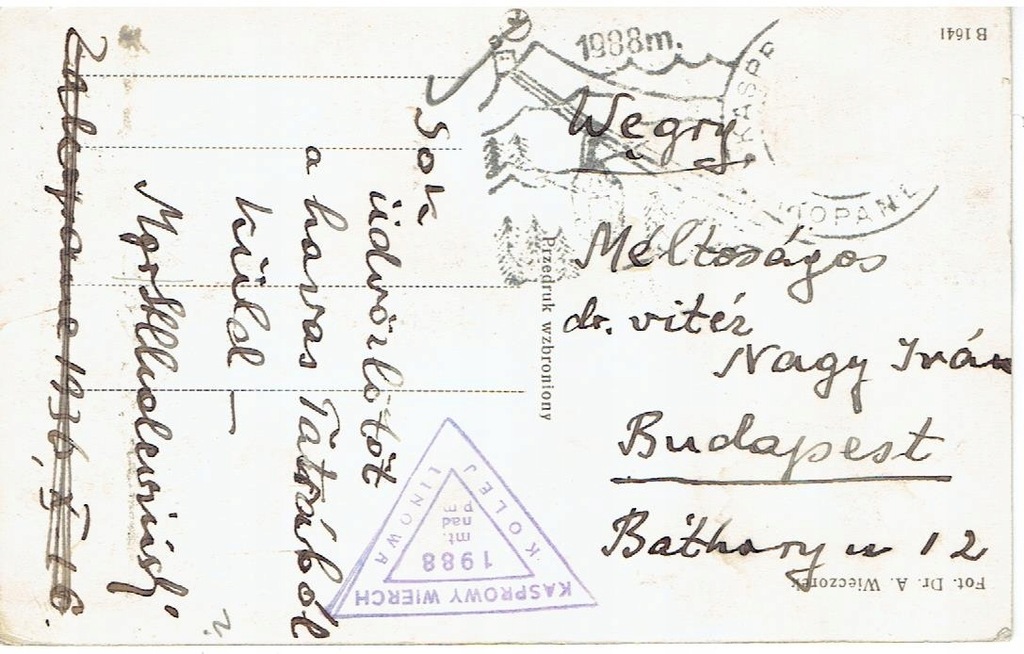 B 1641
1988m.
KASPR
TOPANE
Węgry
Méltóságos
dr. vitéz
Nagy Iván
Budapest
Báthory u 12
Fot. Dr. A. Wieczorek
Przedruk wzbroniony
Sok
üdvözlötöt
a havas Tátrából
küld –
Zakopane 1936. X. 16.
KASPROWY WIERCH
KOLEJ
LINOWA
1988
mt.
nad
p m